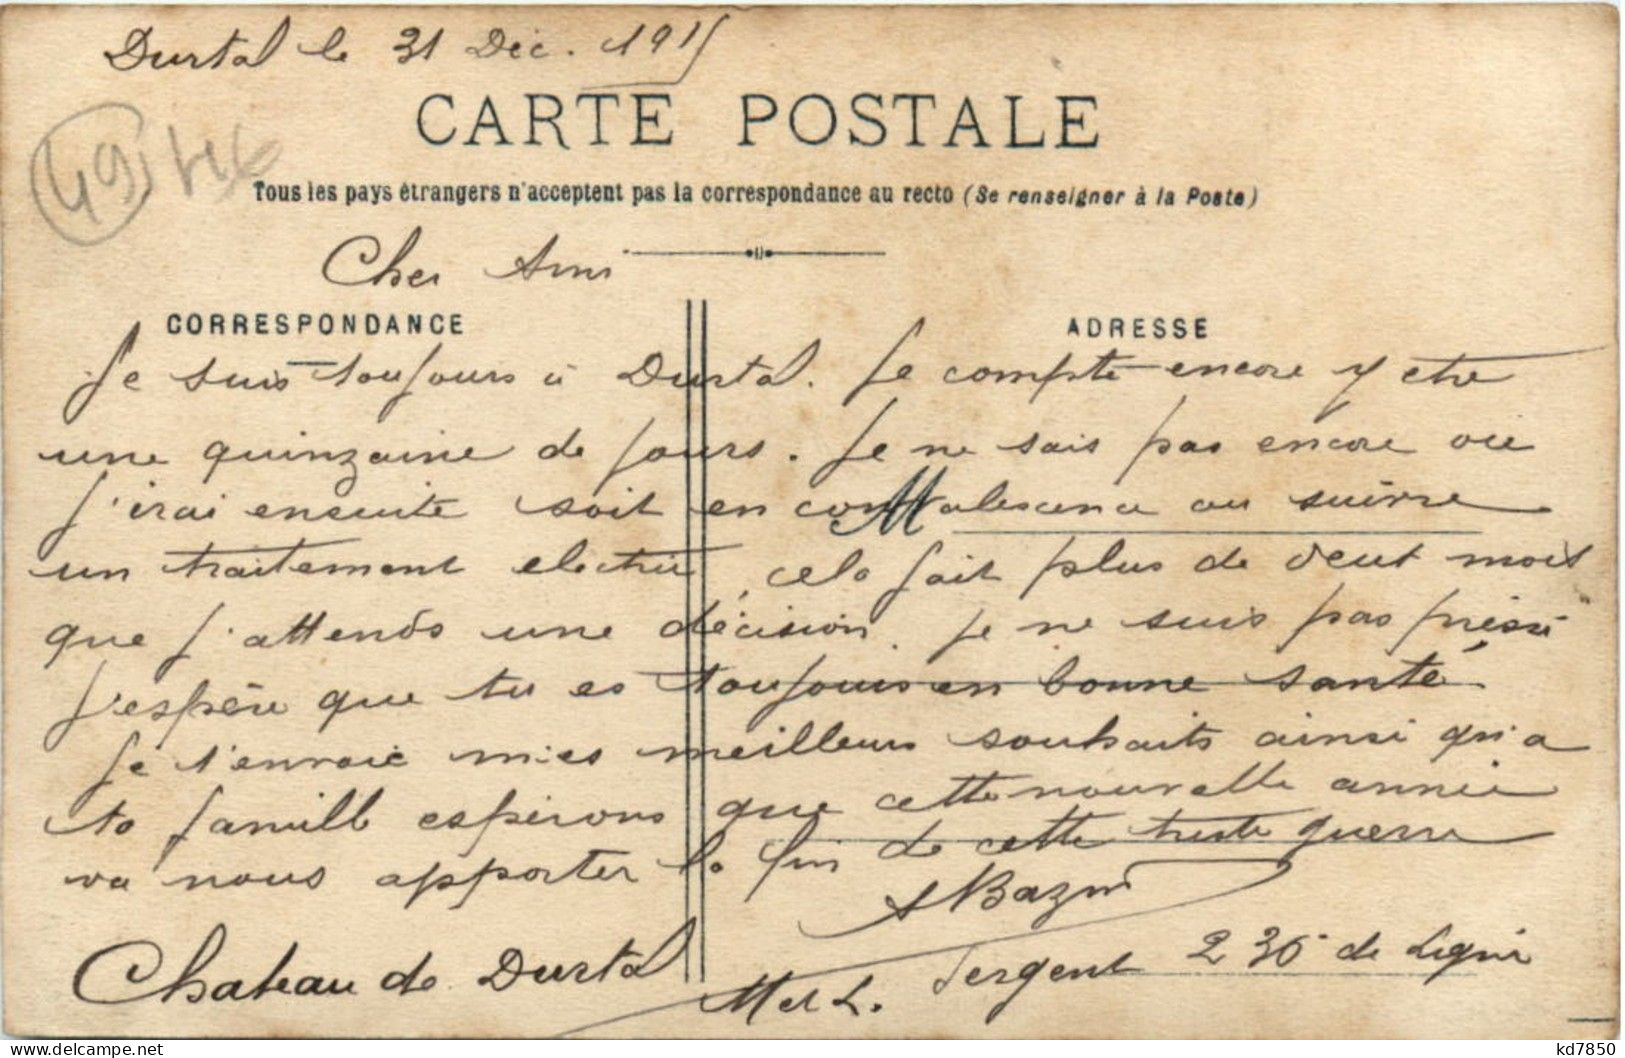 Durtal le 31 Déc. 1915
CARTE POSTALE
49
Tous les pays étrangers n'acceptent pas la correspondance au recto (Se renseigner à la Poste)
Cher Ami
CORRESPONDANCE
ADRESSE
Je suis toujours à Durtal. Je compte encore y etre
une quinzaine de jours. Je ne sais pas encore où
j'irai ensuite soit en convalescence ou suivre
M
un traitement electric, cela fait plus de deux mois
que j'attends une décision. Je ne suis pas pressé
j'espère que tu es toujours en bonne santé
Je t'envoie mes meilleurs souhaits ainsi qu'a
ta famille espérons que cette nouvelle année
va nous apporter la fin de cette triste guerre
Bazin
Chateau de Durtal
M et L.
Sergent 236e de Ligne
kd7850